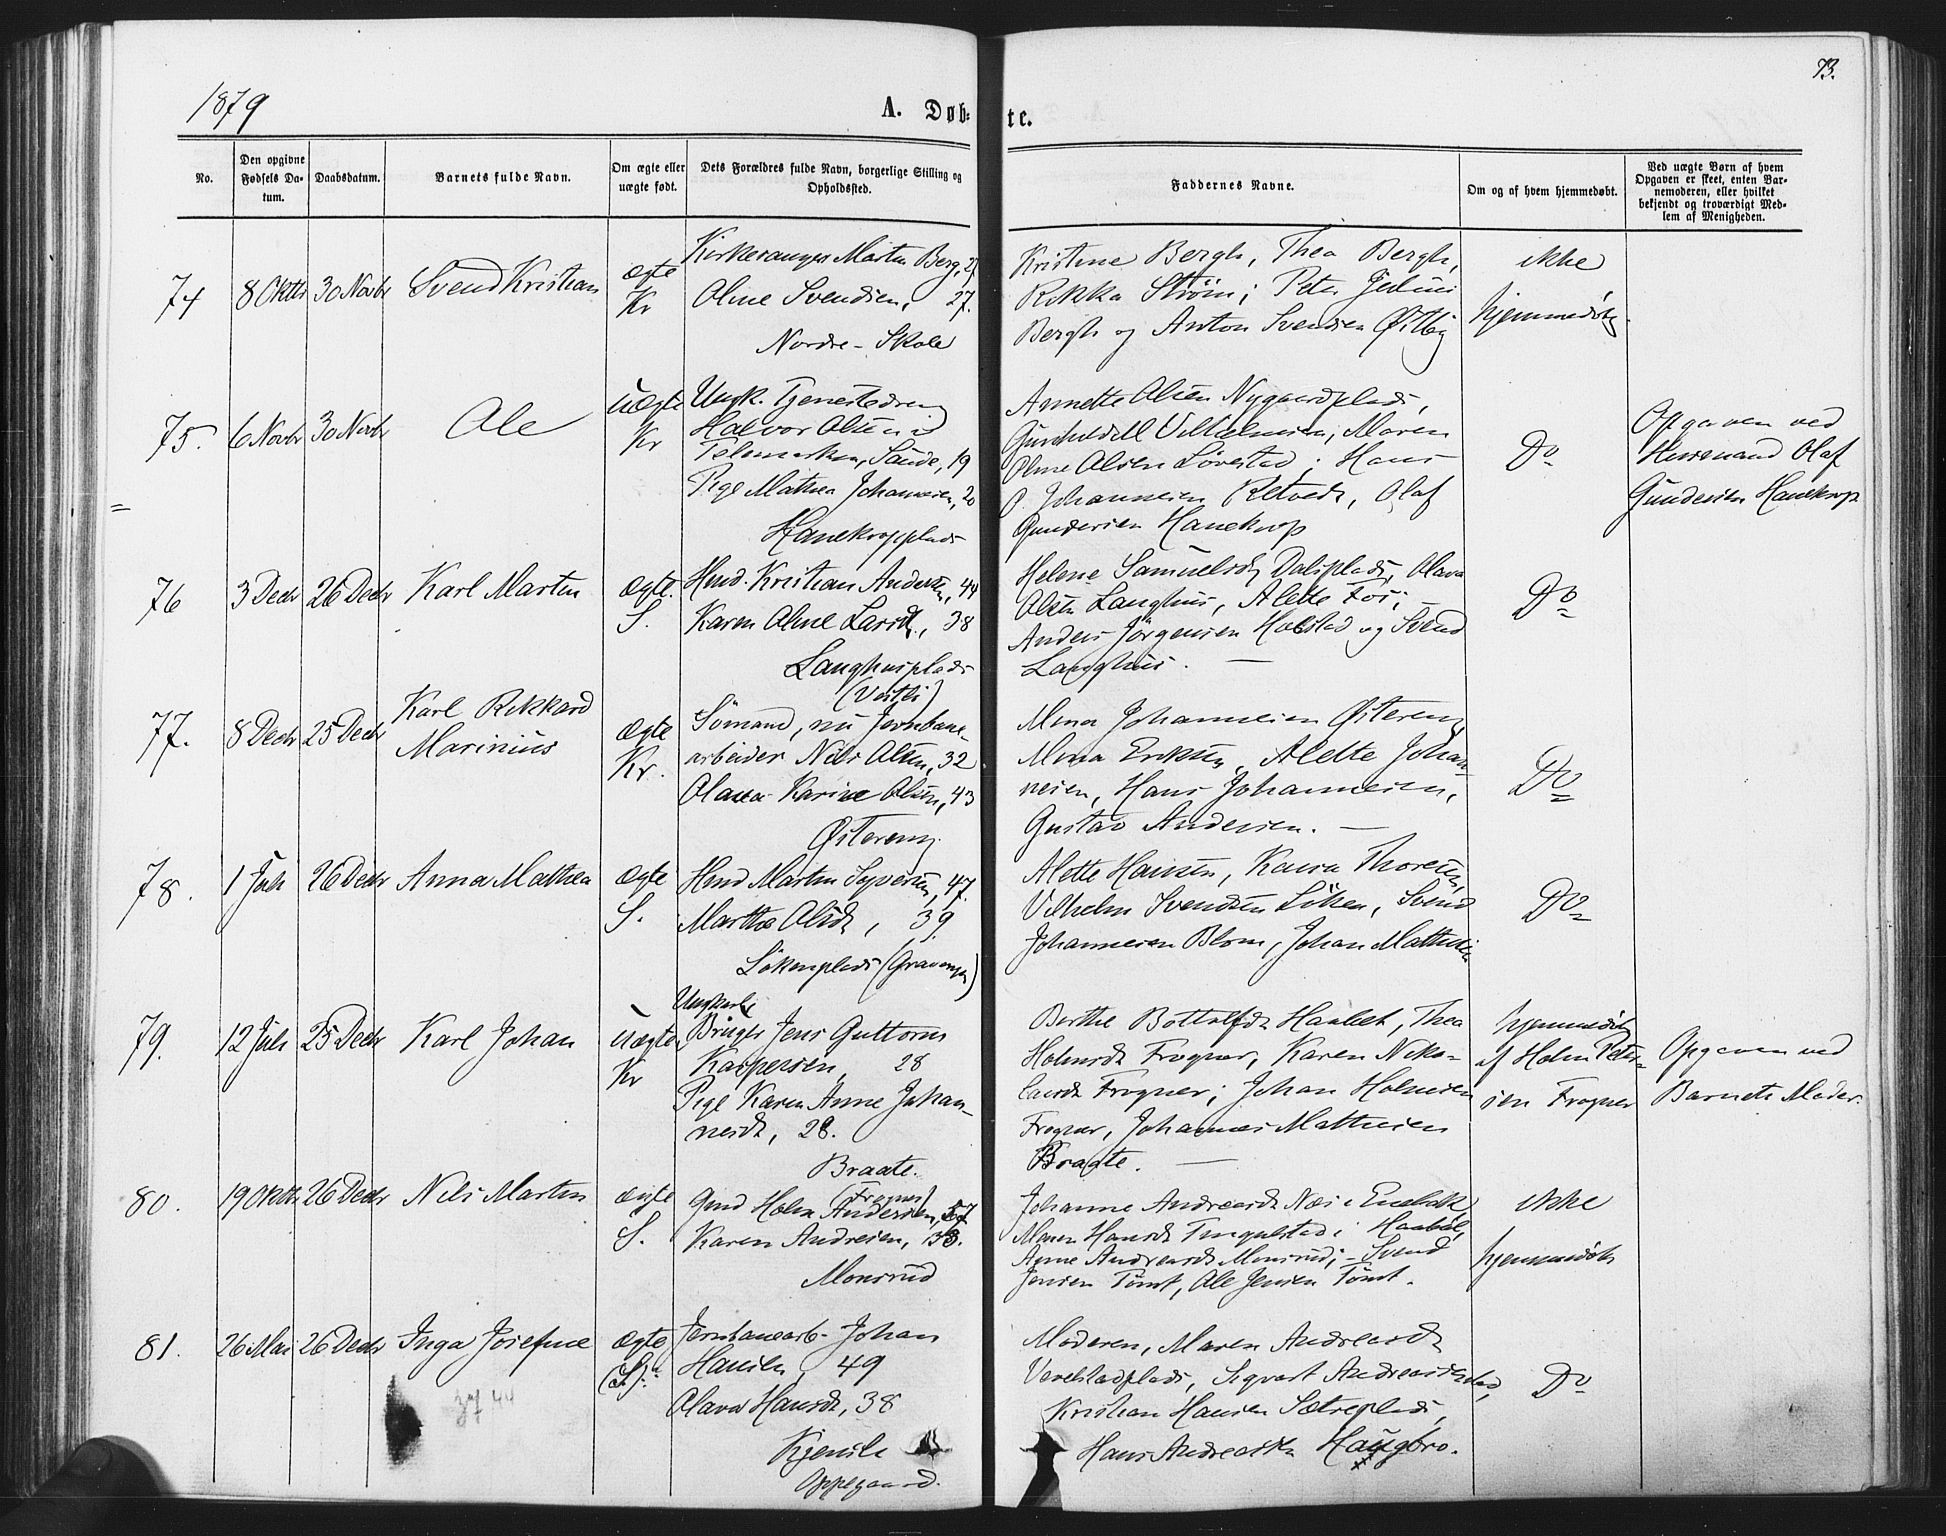 1879
A. Døb-
te.
73.
No.
Den opgivne
Fødsels Da-
tum.
Daabsdatum.
Barnets fulde Navn.
Om ægte eller
uægte født.
Dets Forældres fulde Navn, borgerlige Stilling og
Opholdssted.
Faddernes Navne.
Om og af hvem hjemmedøbt.
Ved uægte Børn af hvem
Opgaven er skeet, enten Bar-
nemoderen, eller hvilket
bekjendt og troværdigt Med-
lem af Menigheden.
74
8 Oktb
30 Novbr
Svend Kristian
ægte
Kr
Kirkesanger Martin Berg,
Oline Svendsen, 27.
Nordre-Skole
Kristine Bergh, Thea Bergh,
Rikka Strøm; Peter Julius
Bergh og Anton Svendsen Østby
ikke
hjemmedøbt
75.
6 Novbr
30 Novbr
Ole
uægte
Kr
Ungk. Tjenestedreng
Halvor Olsen
Telemarken, Saude, 19
Pige Mathea Johannesen, 20
Hanekropplads
Annette Olsen Nygaardplads,
Gunhild Vilhelmsen, Maren
Oline Olsen Løvestad; Hans
P. Johannesen Retvedt, Olaf
Gundersen Hanekrop
Do
Opgaven ved
Husmand Olaf
Gundersen Hanekrop
76
3 Decbr
26 Decbr
Karl Martin
ægte.
S.
Hmd. Kristian Andersen, 44
Karen Oline Larsdt., 38
Langhusplads
(Vestli)
Helene Samuelsdt Dalsplads, Olava
Olsen Langhus, Alette Fos;
Anders Jørgensen Holstad og Svend
Langhus. —
Do
77.
8 Decbr
25 Decbr
Karl Rikkard
Marinius
ægte
Kr.
Sømand, nu Jernbane-
arbeider Nils Olsen, 32
Olava Karine Olsen, 43
Østereng
Mina Johannesen Østereng,
Mina Eriksen, Alette Johan-
nesen, Hans Johannesen,
Gustav Andersen. —
Do
78.
1 Juli
26 Decbr
Anna Mathea
ægte
S.
Hmd Martin Syversen, 47.
Marthe Olsdt, 39.
Løkenplads
Alette Hansen, Kaisa Thoresen,
Vilhelm Svendsen Løken, Svend
Johannesen Blom, Johan Mathisen
Do
79.
12 Juli
25 Decbr
Karl Johan
uægte
Kr
Ungkarl
Jens Guttorm
Kaspersen, 28
Pige Karen Anne Johan-
nesdt, 28.
Braate.
(Frogner)
Berthe Bottolfsdt Haabet, Thea
Holmsdt Frogner, Karen Niko-
laisdt Frogner; Johan Holmsen
Frogner, Johannes Mathisen
Braate. —
hjemmedøbt
af Holm Peter-
sen Frogner
Opgaven ved
Barnets Moder.
80.
19 Oktb
26 Decbr
Nils Martin
ægte
S.
Gmd Holm Andersen, 57
Karen Andresen, 33.
Monsrud
Johanne Andreasdt Næs i Enebak,
Maren Hansdt Tingulstad i Haabøl,
Anne Andreasdt Monsrud; – Svend
Jensen Tomt, Ole Jensen Tomt.
ikke
hjemmedøbt
81.
26 Mai
26 Decbr
Inga Josefine
ægte
(S):
Jernbanearb. Johan
Hansen, 49
Olava Hansdt, 38
Oppegaard.
Moderen, Maren Andreasdt
Vevelstadplads, Sigvart Andreassen
Kristian Hansen Sætreplads,
Hans Andreassen Haugbro.
Do